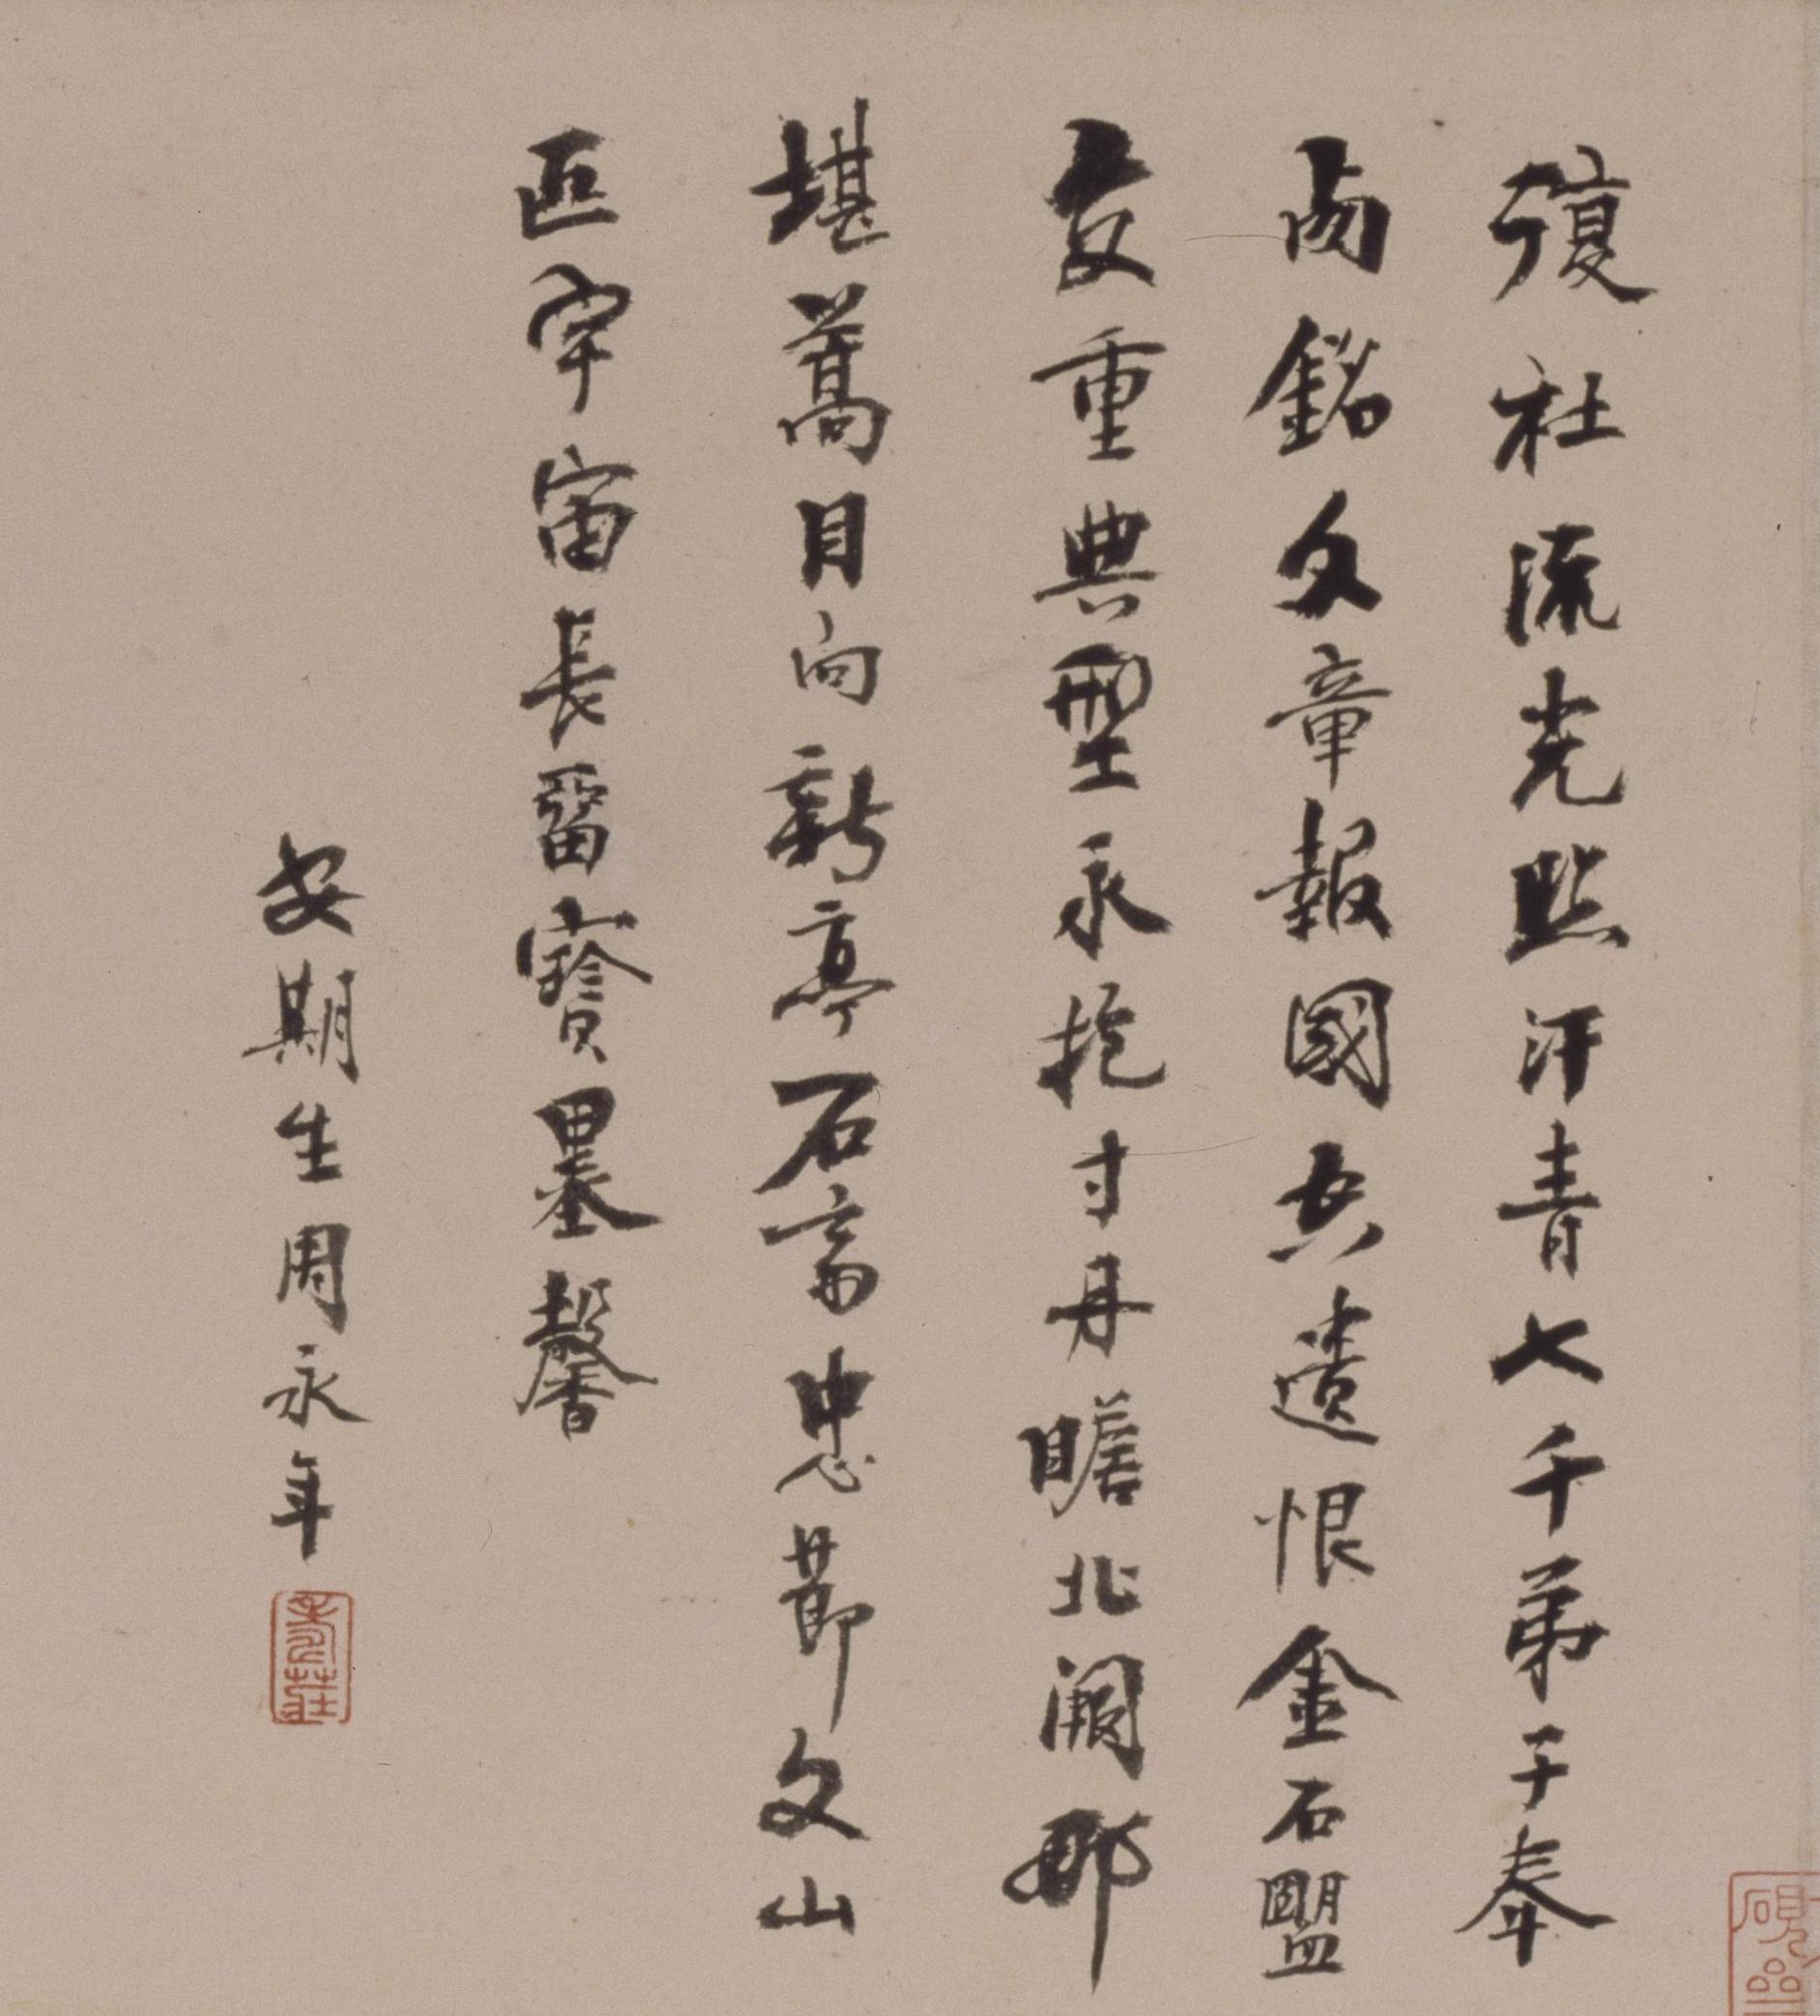 復社流光照汗青七千弟子奉
銘文章報國遺恨金石盟
交重典型永抱寸丹瞻北闕那
堪蒿目向新亭石齋忠節文山
匹宇宙長留寶墨馨
安期生周永年